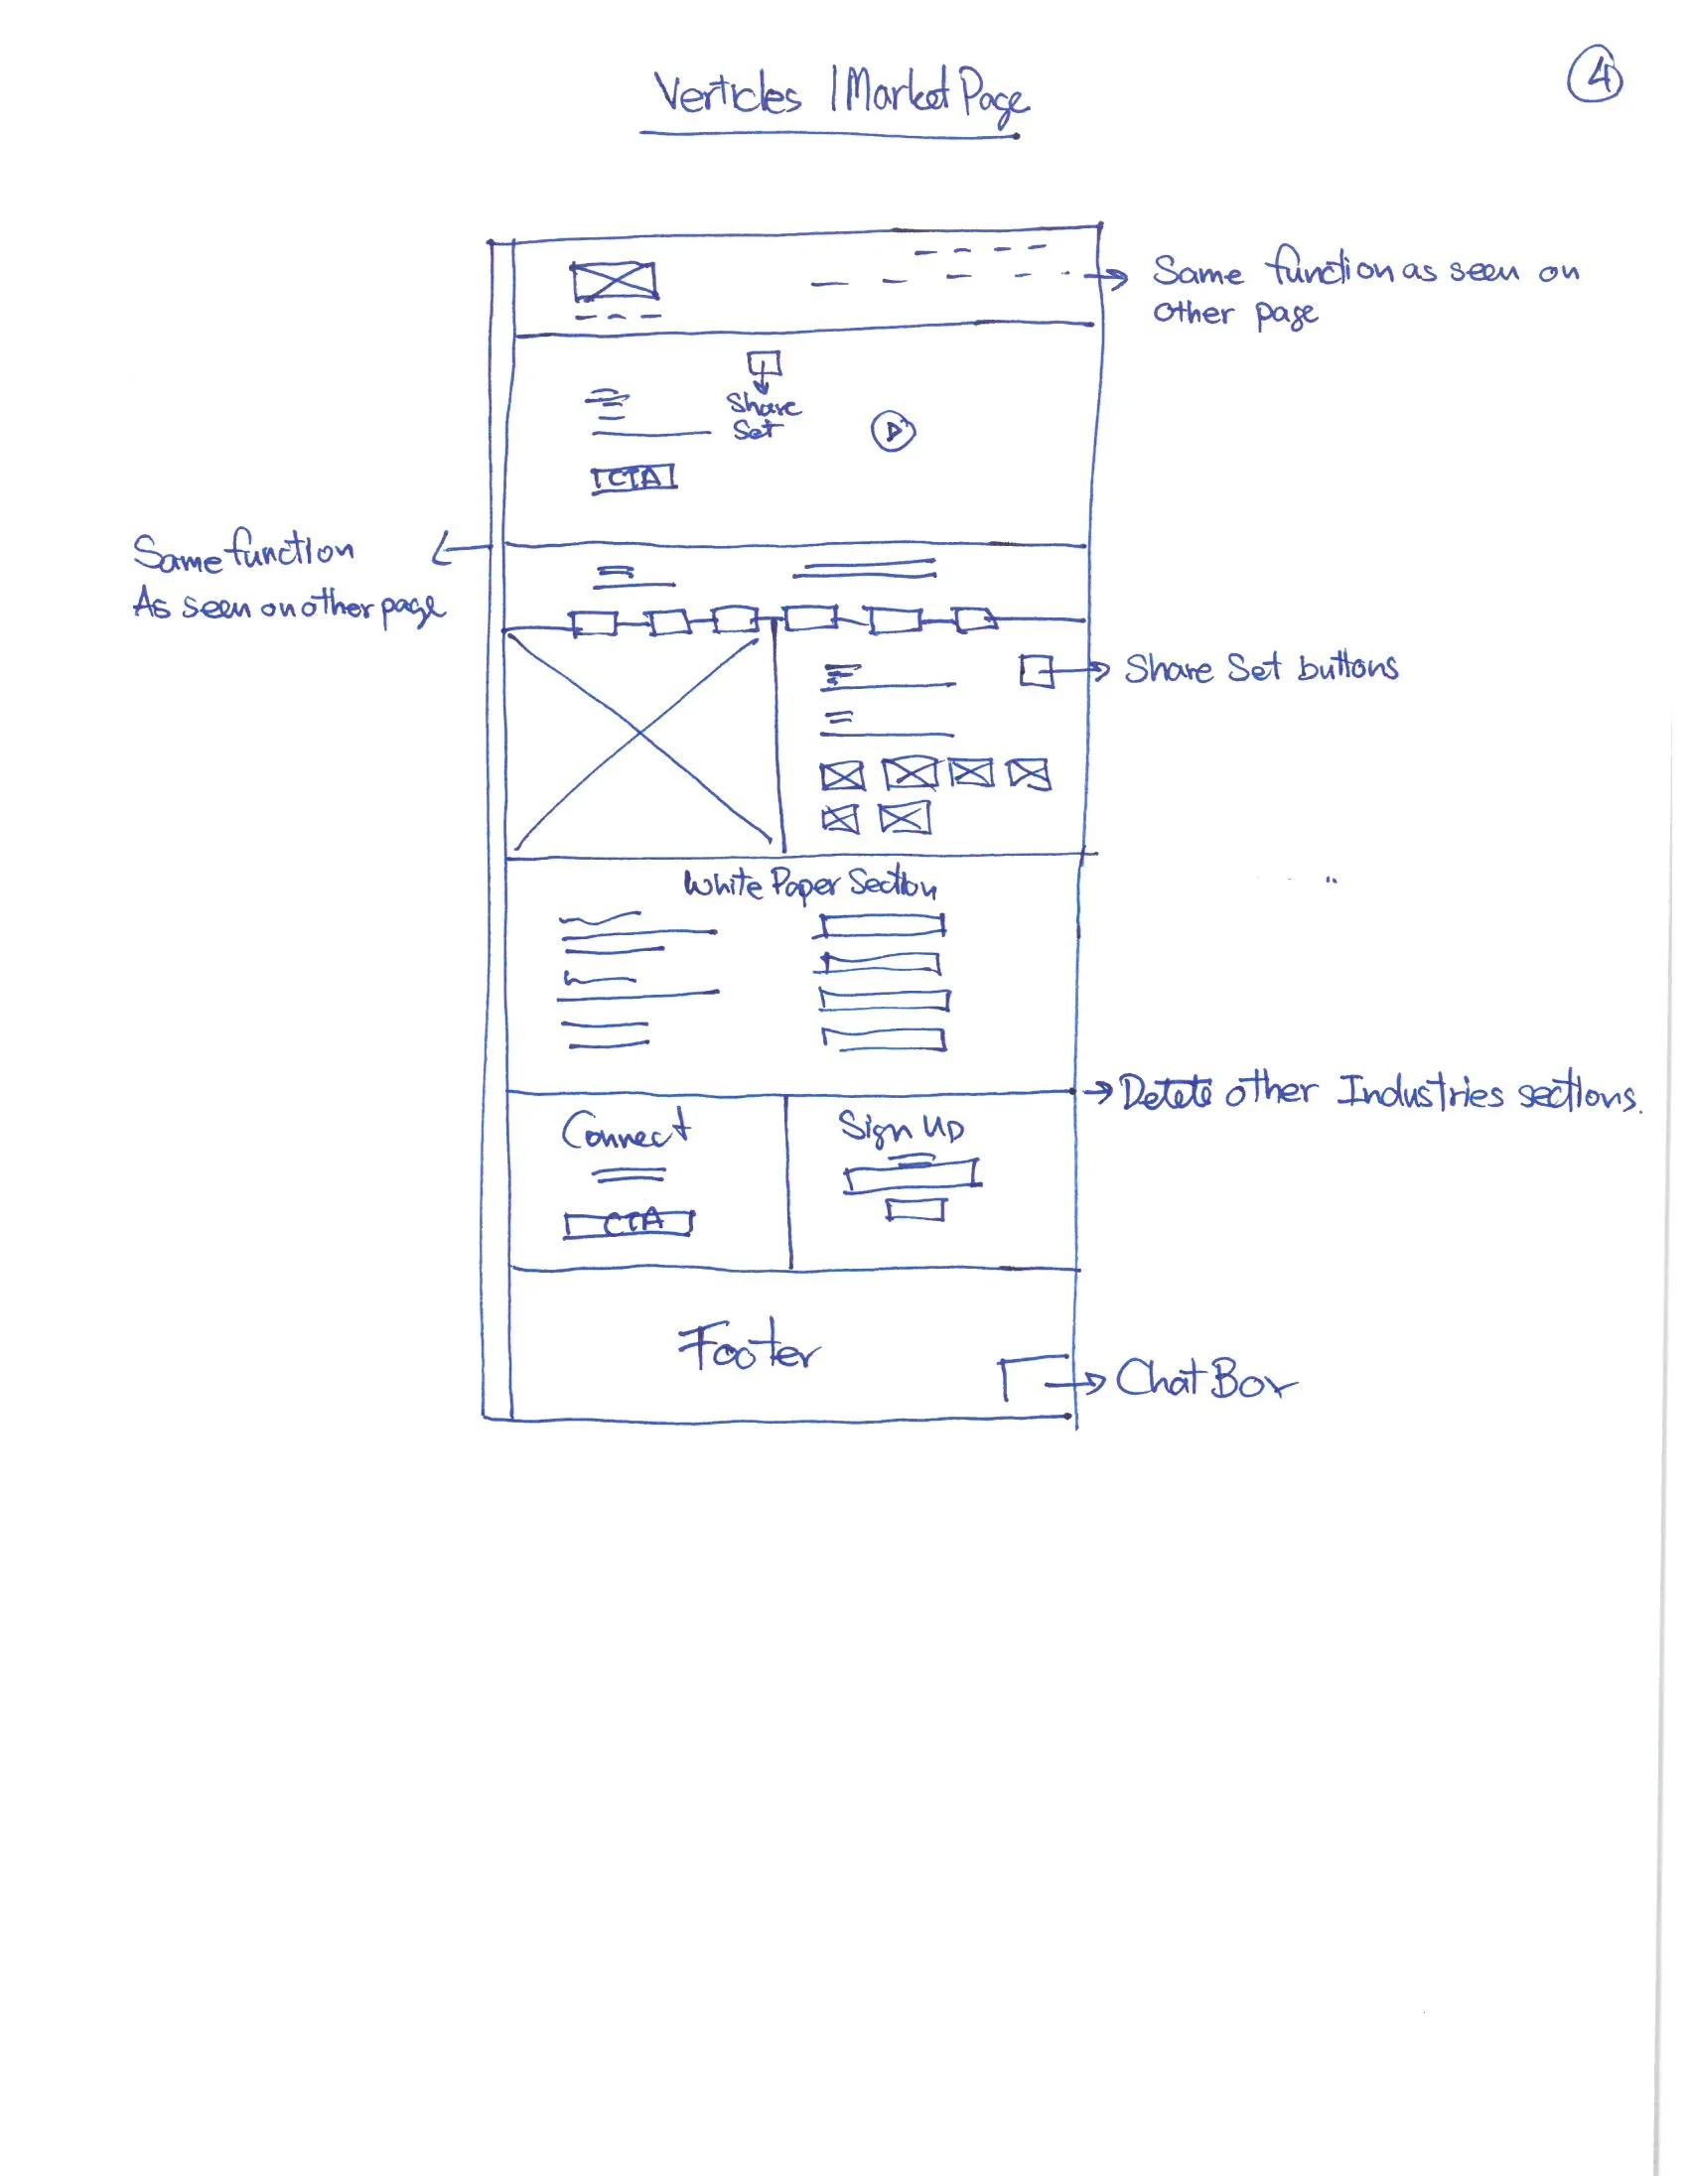 Verticles / Market Page
4
Same function as seen on
other page
Share
Set
CTA
Same function
As seen on other page
Share Set buttons
White Paper Section
Delete other Industries sections.
Connect
Sign Up
CTA
Footer
Chat Box